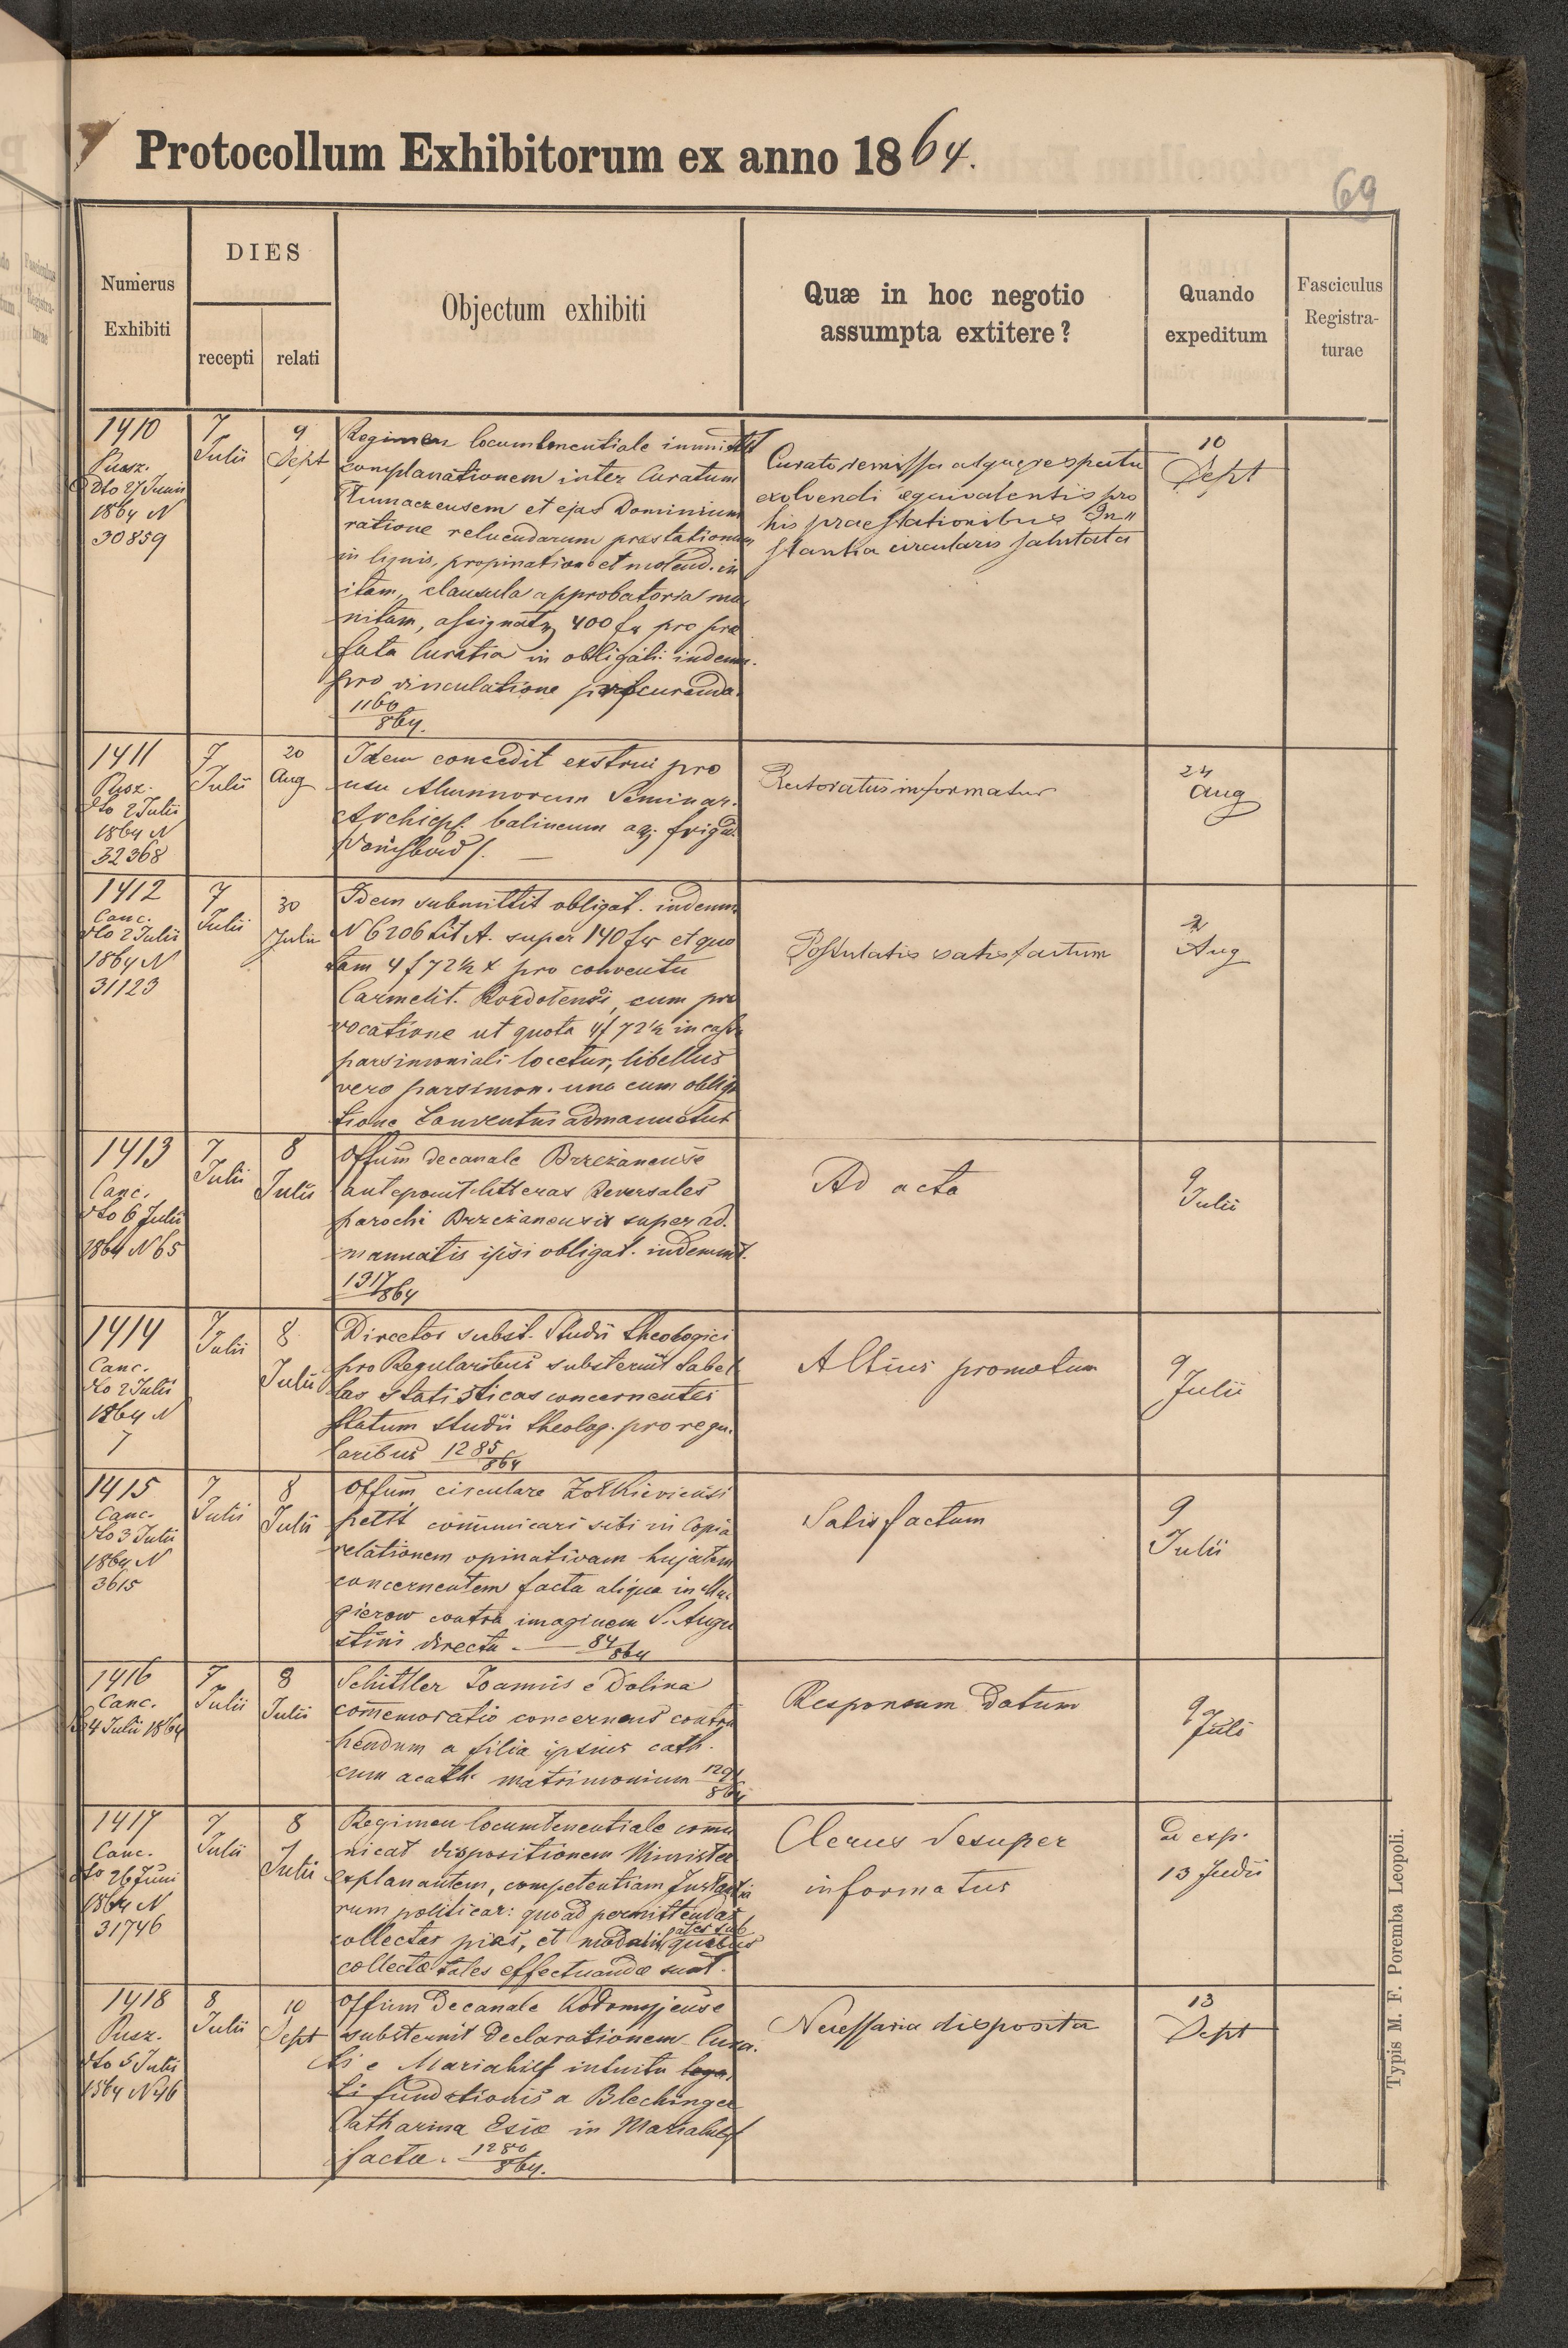 Protocollum Exhibitorum ex anno 1864.
69
Numerus
Exhibiti
DIES
recepti
relati
Objectum exhibiti
Quæ in hoc negotio
assumpta extitere?
Quando
expeditum
Fasciculus
Registra-
turae
1410
Pusz.
dto 27 Junii
1864 N
30859
7
Julii
9
Sept
Regimen locumtenentiale immittit
complanationem inter Curatum
Tlumaczensem et ejus Dominium
ratione reluendarum præstationum
in lignis, propinatione et molend. in
itam, clausula approbatoria mu
nitam, assignat 400 fr pro præ
fata Curatia in obligati indemn.
pro vinculatione procuranda.
1160
864.
Curato remissa atque respectu
exolvendi æquivalentis pro
his praestationibus In"
stantia circularis salutata
10
Sept
1411
Pusz.
dto 2 Julii
1864 N
32368
7
Julii
20
Aug
Idem concedit exstrui pro
usu Alumnorum Seminar.
Archiepl. balineum aq. frigid.
24
Aug
Rectoratus informatur
1412
Canc.
dto 2 Julii
1864 N
31123
7
Julii
30
Julii
Idem submittit obligat. indemn
N 6206 Lit A. super 140 fr et quo
tam 4 f 72 ½ x pro conventu
Carmelit. Rozdolensi, cum pro
vocatione ut quota 4 f 72 ½ in cassa
parsimoniali locetur, libellus
vero parsimon. una cum obliga
tione Conventui admanuetur
Postulatis satisfactum
2
Aug
1413
Canc.
dto 6 Julii
1864 N 65
7
Julii
8
Julii
Offum decanale Brzeżanense
anteponit litteras Reversales
parochi Brzeżanensis super ad.
manuatis ipsi obligat. indemnt.
1317/864
Ad acta
9
Julii
1414
Canc.
dto 2 Julii
1864 N
7
7
Julii
8
Julii
Director subst. Studii theologici
pro Regularibus substernit tabel
las statisticas concernentes
statum studii theolog. pro regu.
laribus 1285/864
Altius promotum
9
Julii
1415
Canc.
dto 3 Julii
1864 N
3615
7
Julii
8
Julii
Offum circulare Zołkieviensi
petit communicari sibi in Copia
relationem opinativam hujatem
concernentem facta aliqua in Ma
gierow contra imaginem S. Augu
stini directa. — 84/864
Satisfactum
9
Julii
1416
Canc.
4 Julii 1864
7
Julii
8
Julii
Schittler Joannis e Dolina
commemoratio concernens contra
hendum a filia ipsius cath.
cum acath. matrimonium
Responsum datum
9
Juli
1417
Canc.
dto 26 Juni
1864 N
31746
7
Julii
8
Julii
Regimen locumtenentiale commu
nicat dispositionem Minister
explanantem, competentiam Instantia
rum politicar: quoad permittendas
collectas pias, et modalitates sub quibus
collectæ tales effectuandæ sunt.
Clerus desuper
informatus
exp.
13 Julii
1418
Pusz.
dto 5 Julii
1864 N 46
8
Julii
10
Sept
Offium Decanale Kolomyjense
substernit declarationem Cura.
ti e Mariahilf intuitu lega,
ti fundationis a Blechinger
Catharina Esiæ in Mariahilf
factæ. 1280
864.
Necessaria disposita
13
Sept
Typis M. F. Poremba Leopoli.